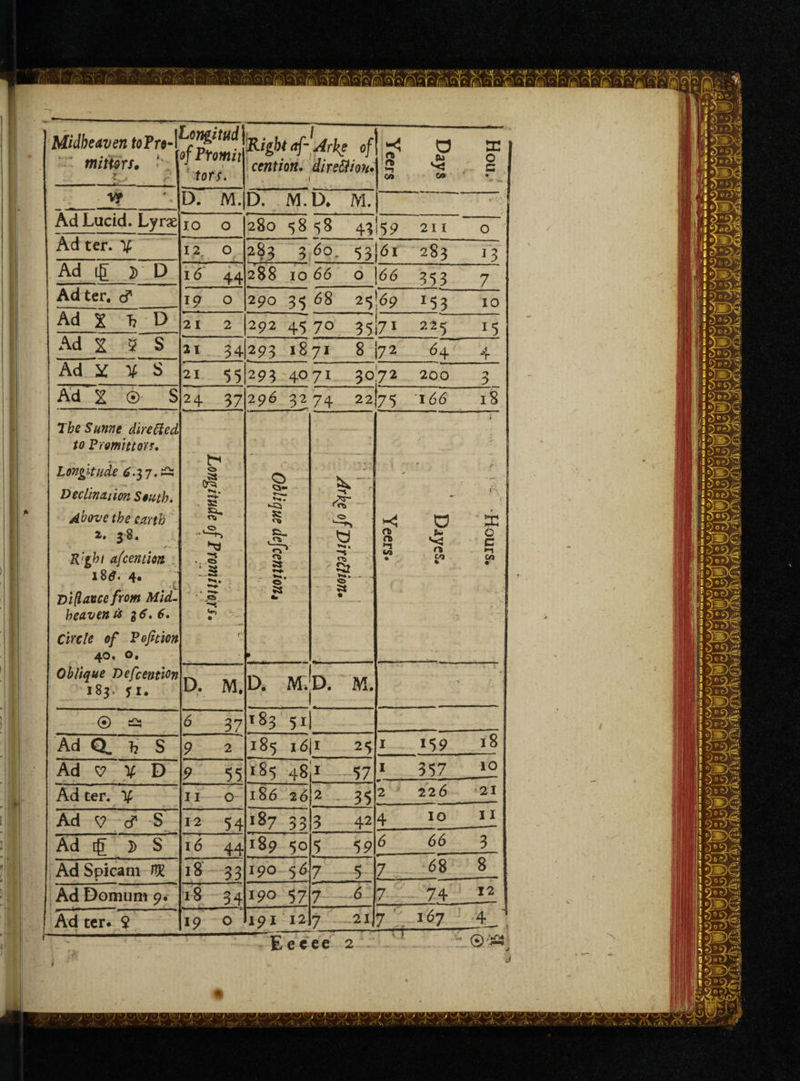 Midheaven to Pro- | Longitud | Right as- | Arke of | Yeers | Days | Hou.
mittors. | of Promit | cention. | direction.
tors.
♑ | D. M. | D. M. | D. M.
Ad Lucid. Lyræ | 10 0 | 280 58 | 58 43 | 59 211 0
Ad ter. ♃ | 12 0 | 283 3 | 60. 53 | 61 283 13
Ad ☽ D | 16 44 | 288 10 | 66 0 | 66 353 7
Ad ter. ♂ | 19 0 | 290 35 | 68 25 | 69 153 10
Ad ♄ D | 21 2 | 292 45 | 70 35 | 71 225 15
Ad ♀ S | 21 34 | 293 18 | 71 8 | 72 64 4
Ad ♃ S | 21 55 | 293 40 | 71 30 | 72 200 3
Ad ☉ S | 24 37 | 296 32 | 74 22 | 75 166 18
The Sunne directed
to Promittors.
Longitude 6.37. ♎
Declination South.
Above the earth
2. 38.
Right ascention
186. 4.
Distance from Mid-
heaven is 36. 6.
Circle of Position
40. 0.
Oblique Descention
183. 51.
Longitude of Promittors.
Oblique descention.
Arke of Direction.
Yeers.
Dayes.
Hours.
D. M. | D. M. | D. M.
☉ ♎ | 6 37 | 183 51
Ad Q. ♄ S | 9 2 | 185 16 | 1 25 | 1 159 18
Ad ♃ D | 9 55 | 185 48 | 1 57 | 1 357 10
Ad ter. ♃ | 11 0 | 186 26 | 2 35 | 2 226 21
Ad ♂ S | 12 54 | 187 33 | 3 42 | 4 10 11
Ad ☽ S | 16 44 | 189 50 | 5 59 | 6 66 3
Ad Spicam ♍ | 18 33 | 190 56 | 7 5 | 7 68 8
Ad Domum 9. | 18 34 | 190 57 | 7 6 | 7 74 12
Ad ter. ♀ | 19 0 | 191 12 | 7 21 | 7 167 4
Eeeee 2 ☉ ♎